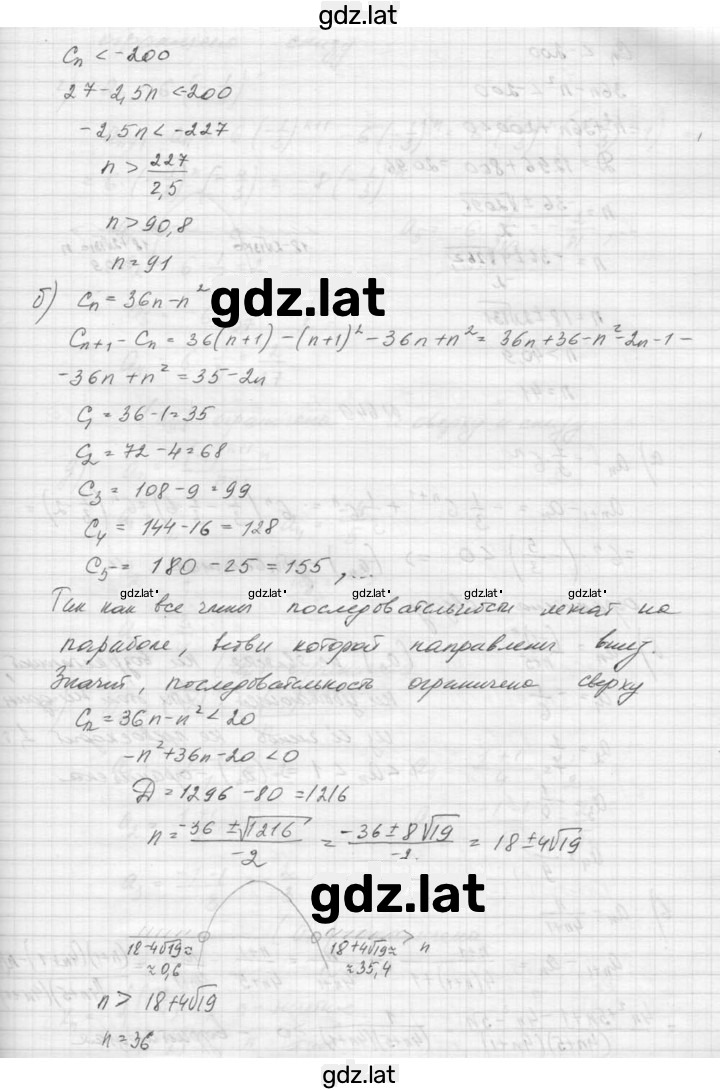 gdz.lat
Cₙ < -200
27 - 2,5n < -200
-2,5n < -227
n > 227/2,5
n > 90,8
n = 91
б) Cₙ = 36n - n²
gdz.lat
Cₙ₊₁ - Cₙ = 36(n+1) - (n+1)² - 36n + n² = 36n + 36 - n² - 2n - 1 -
- 36n + n² = 35 - 2n
C₁ = 36 - 1 = 35
C₂ = 72 - 4 = 68
C₃ = 108 - 9 = 99
C₄ = 144 - 16 = 128
C₅ = 180 - 25 = 155, ...
gdz.lat gdz.lat gdz.lat gdz.lat
Так как все члены последовательности лежат на
параболе, ветви которой направлены вниз.
Значит, последовательность ограничена сверху
Cₙ = 36n - n² < 20
-n² + 36n - 20 < 0
Д = 1296 - 80 = 1216
n = (-36 ± √1216)/-2 = (-36 ± 8√19)/-2 = 18 ± 4√19
gdz.lat
18-4√19 ≈ 18+4√19 ≈ n
≈ 0,6 ≈ 35,4
n > 18+4√19
n = 36
gdz.lat